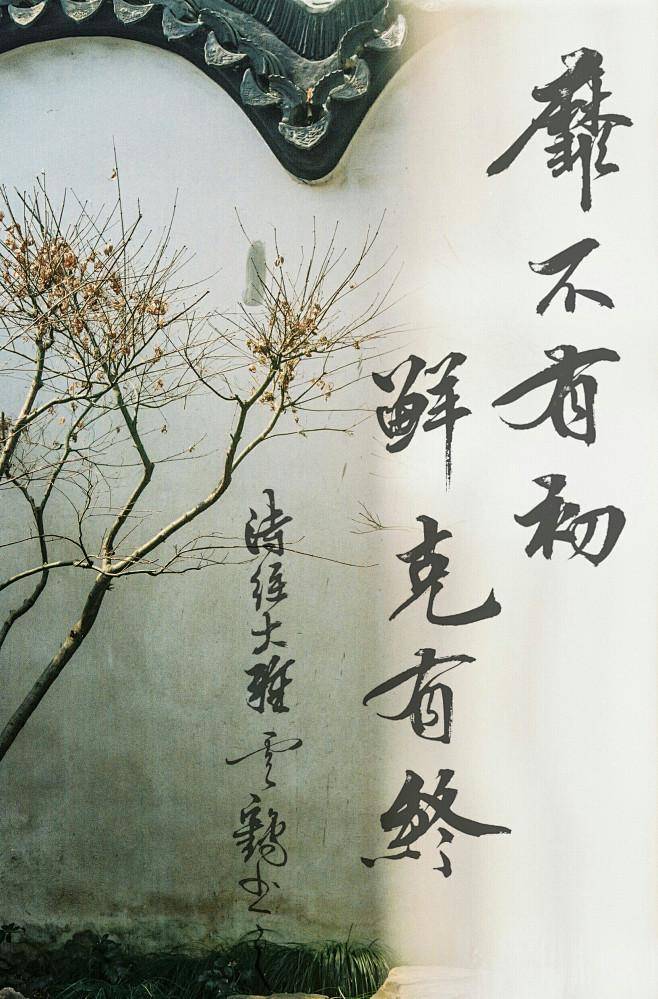 靡不有初
鲜克有终
诗经大雅 云鹤书